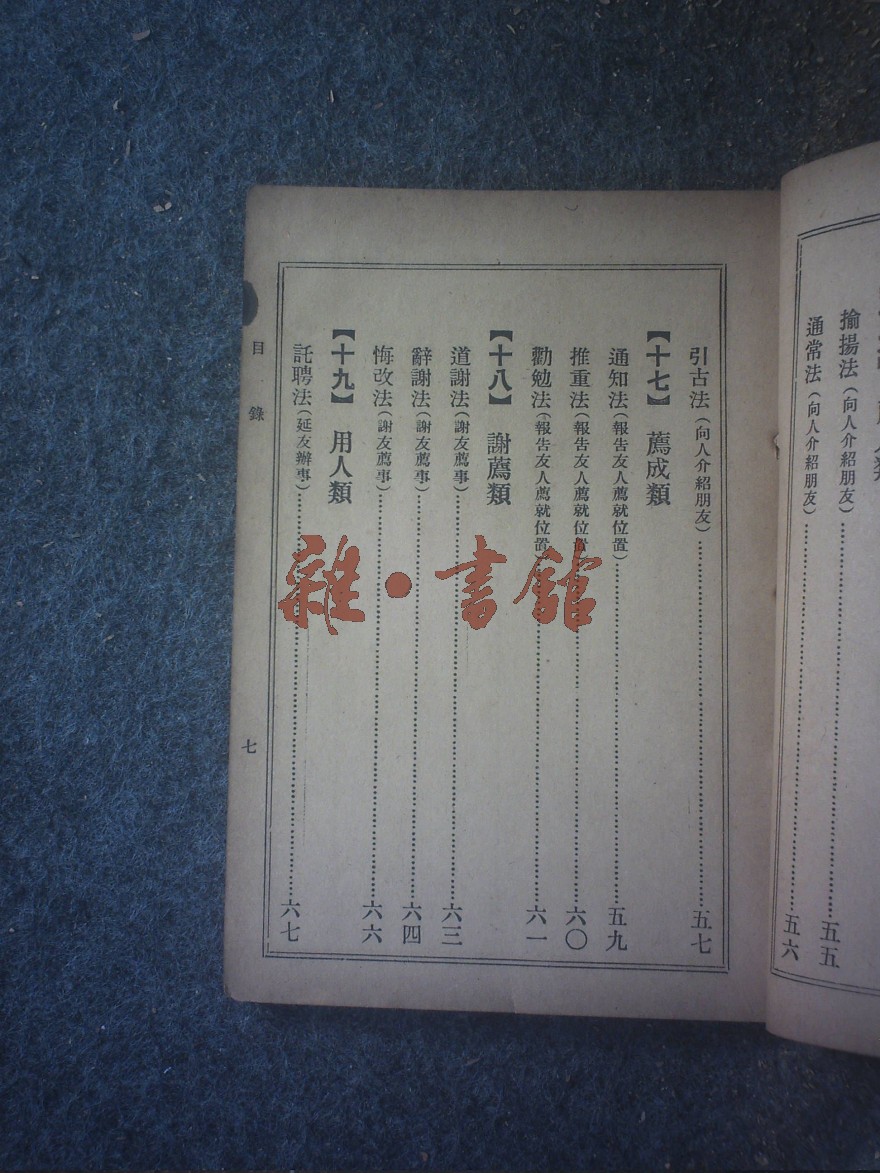 揄揚法(向人介紹朋友)……五五
通常法(向人介紹朋友)……五六
引古法(向人介紹朋友)……五七
【十七】 薦成類
通知法(報告友人薦就位置)……五九
推重法(報告友人薦就位置)……六〇
勸勉法(報告友人薦就位置)……六一
【十八】 謝薦類
道謝法(謝友薦事)……六三
辭謝法(謝友薦事)……六四
悔改法(謝友薦事)……六六
【十九】 用人類
託聘法(延友辦事)……六七
目錄
七
雜·書館